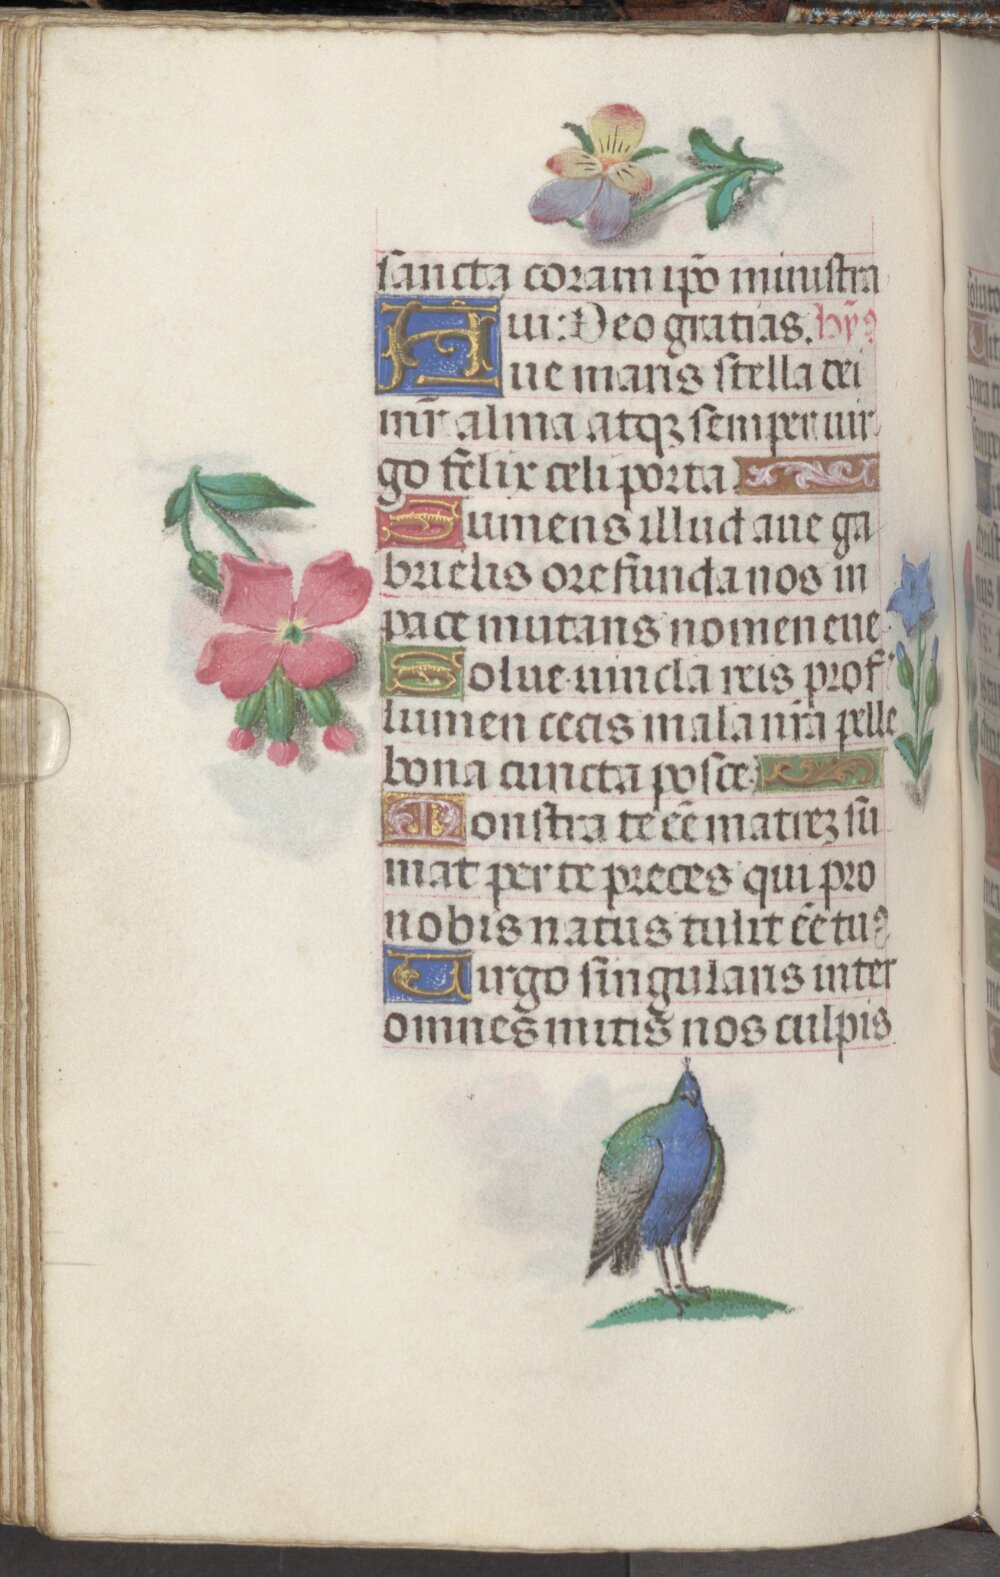 sancta coram ip̄o ministra
ui: Deo gratias. hỹ9
Aue maris stella dei
mr̄ alma atqꝫ semper uir
go felix celi porta
Sumens illud aue ga
brielis ore funda nos in
pace mutans nomen eue
Solue uincla reis prof̄
lumen cecis mala nr̄a pelle
bona cuncta posce
Monstra te eē̄ matreꝫ su
mat per te preces qui pro
nobis natus tulit eē̄ tu9
Uirgo singularis inter
omnes mitis nos culpis